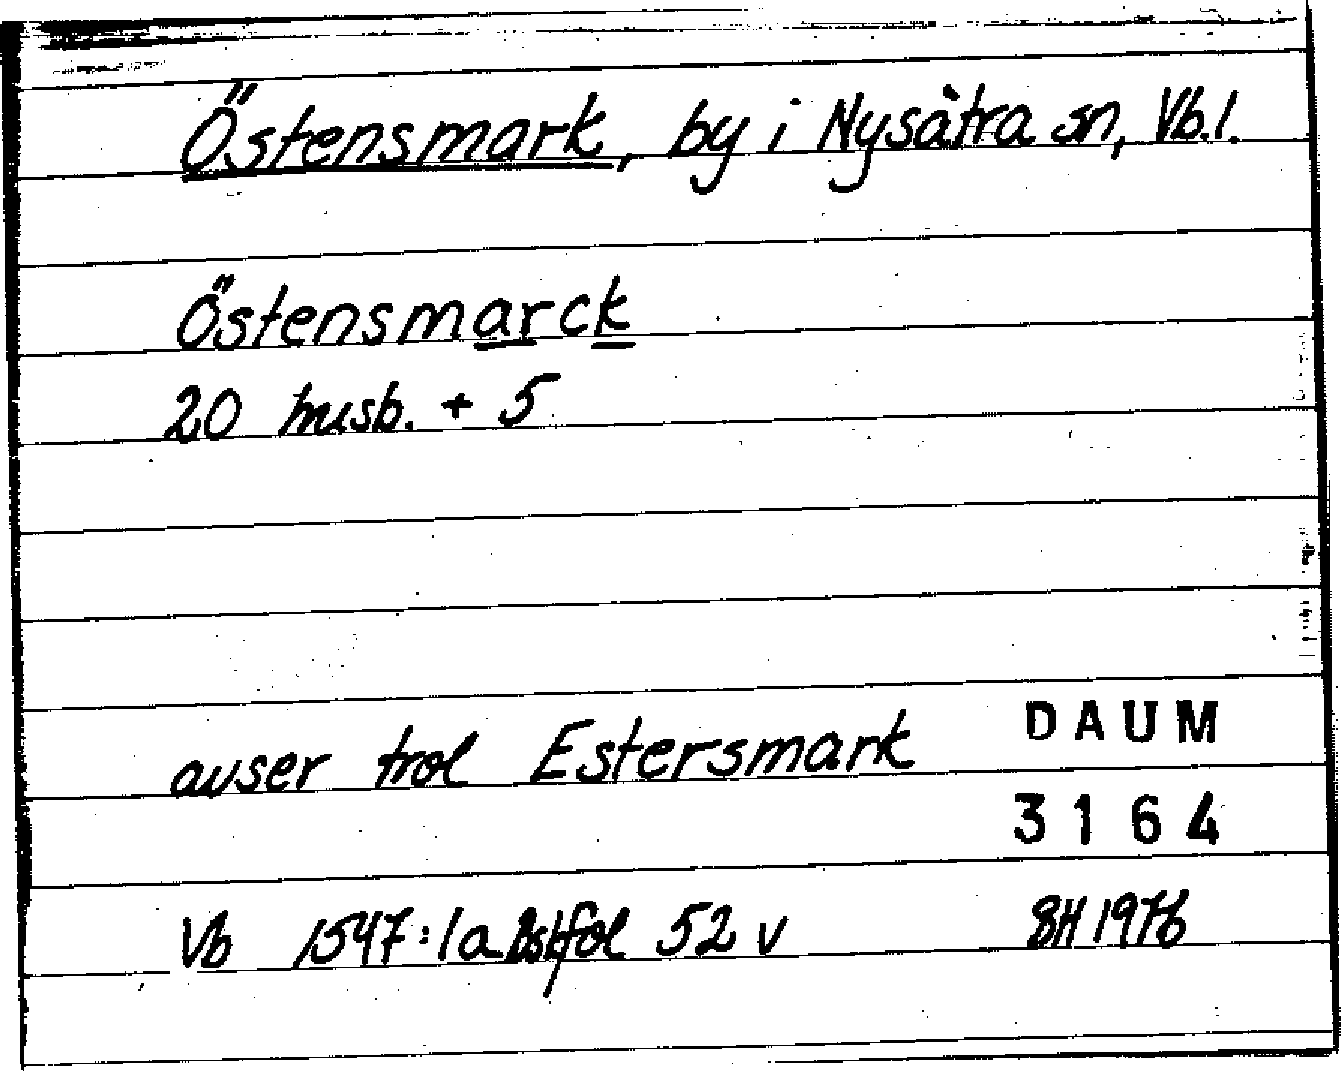 Östensmark, by i Nysätra sn, Vb.l.
Östensmarck
20 husb. + 5
avser trol Estersmark
DAUM
3164
Vb 1547:1a fol 52 v
BH 1976